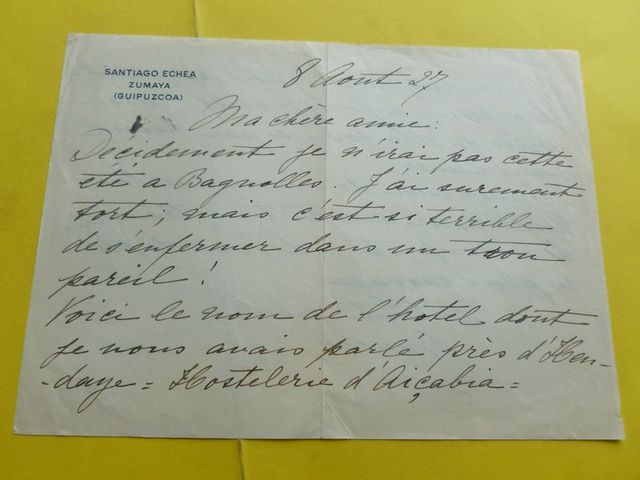 SANTIAGO ECHEA
ZUMAYA
(GUIPUZCOA)
8 Aout 27
Ma chère amie:
Décidement je n'irai pas cette
été a Bagnolles. J'ai surement
tort; mais c'est si terrible
de s'enfermer dans un trou
pareil!
Voici le nom de l'hotel dont
je vous avais parlé près d'Hen-
-daye = Hostelerie d'Aiçabia =